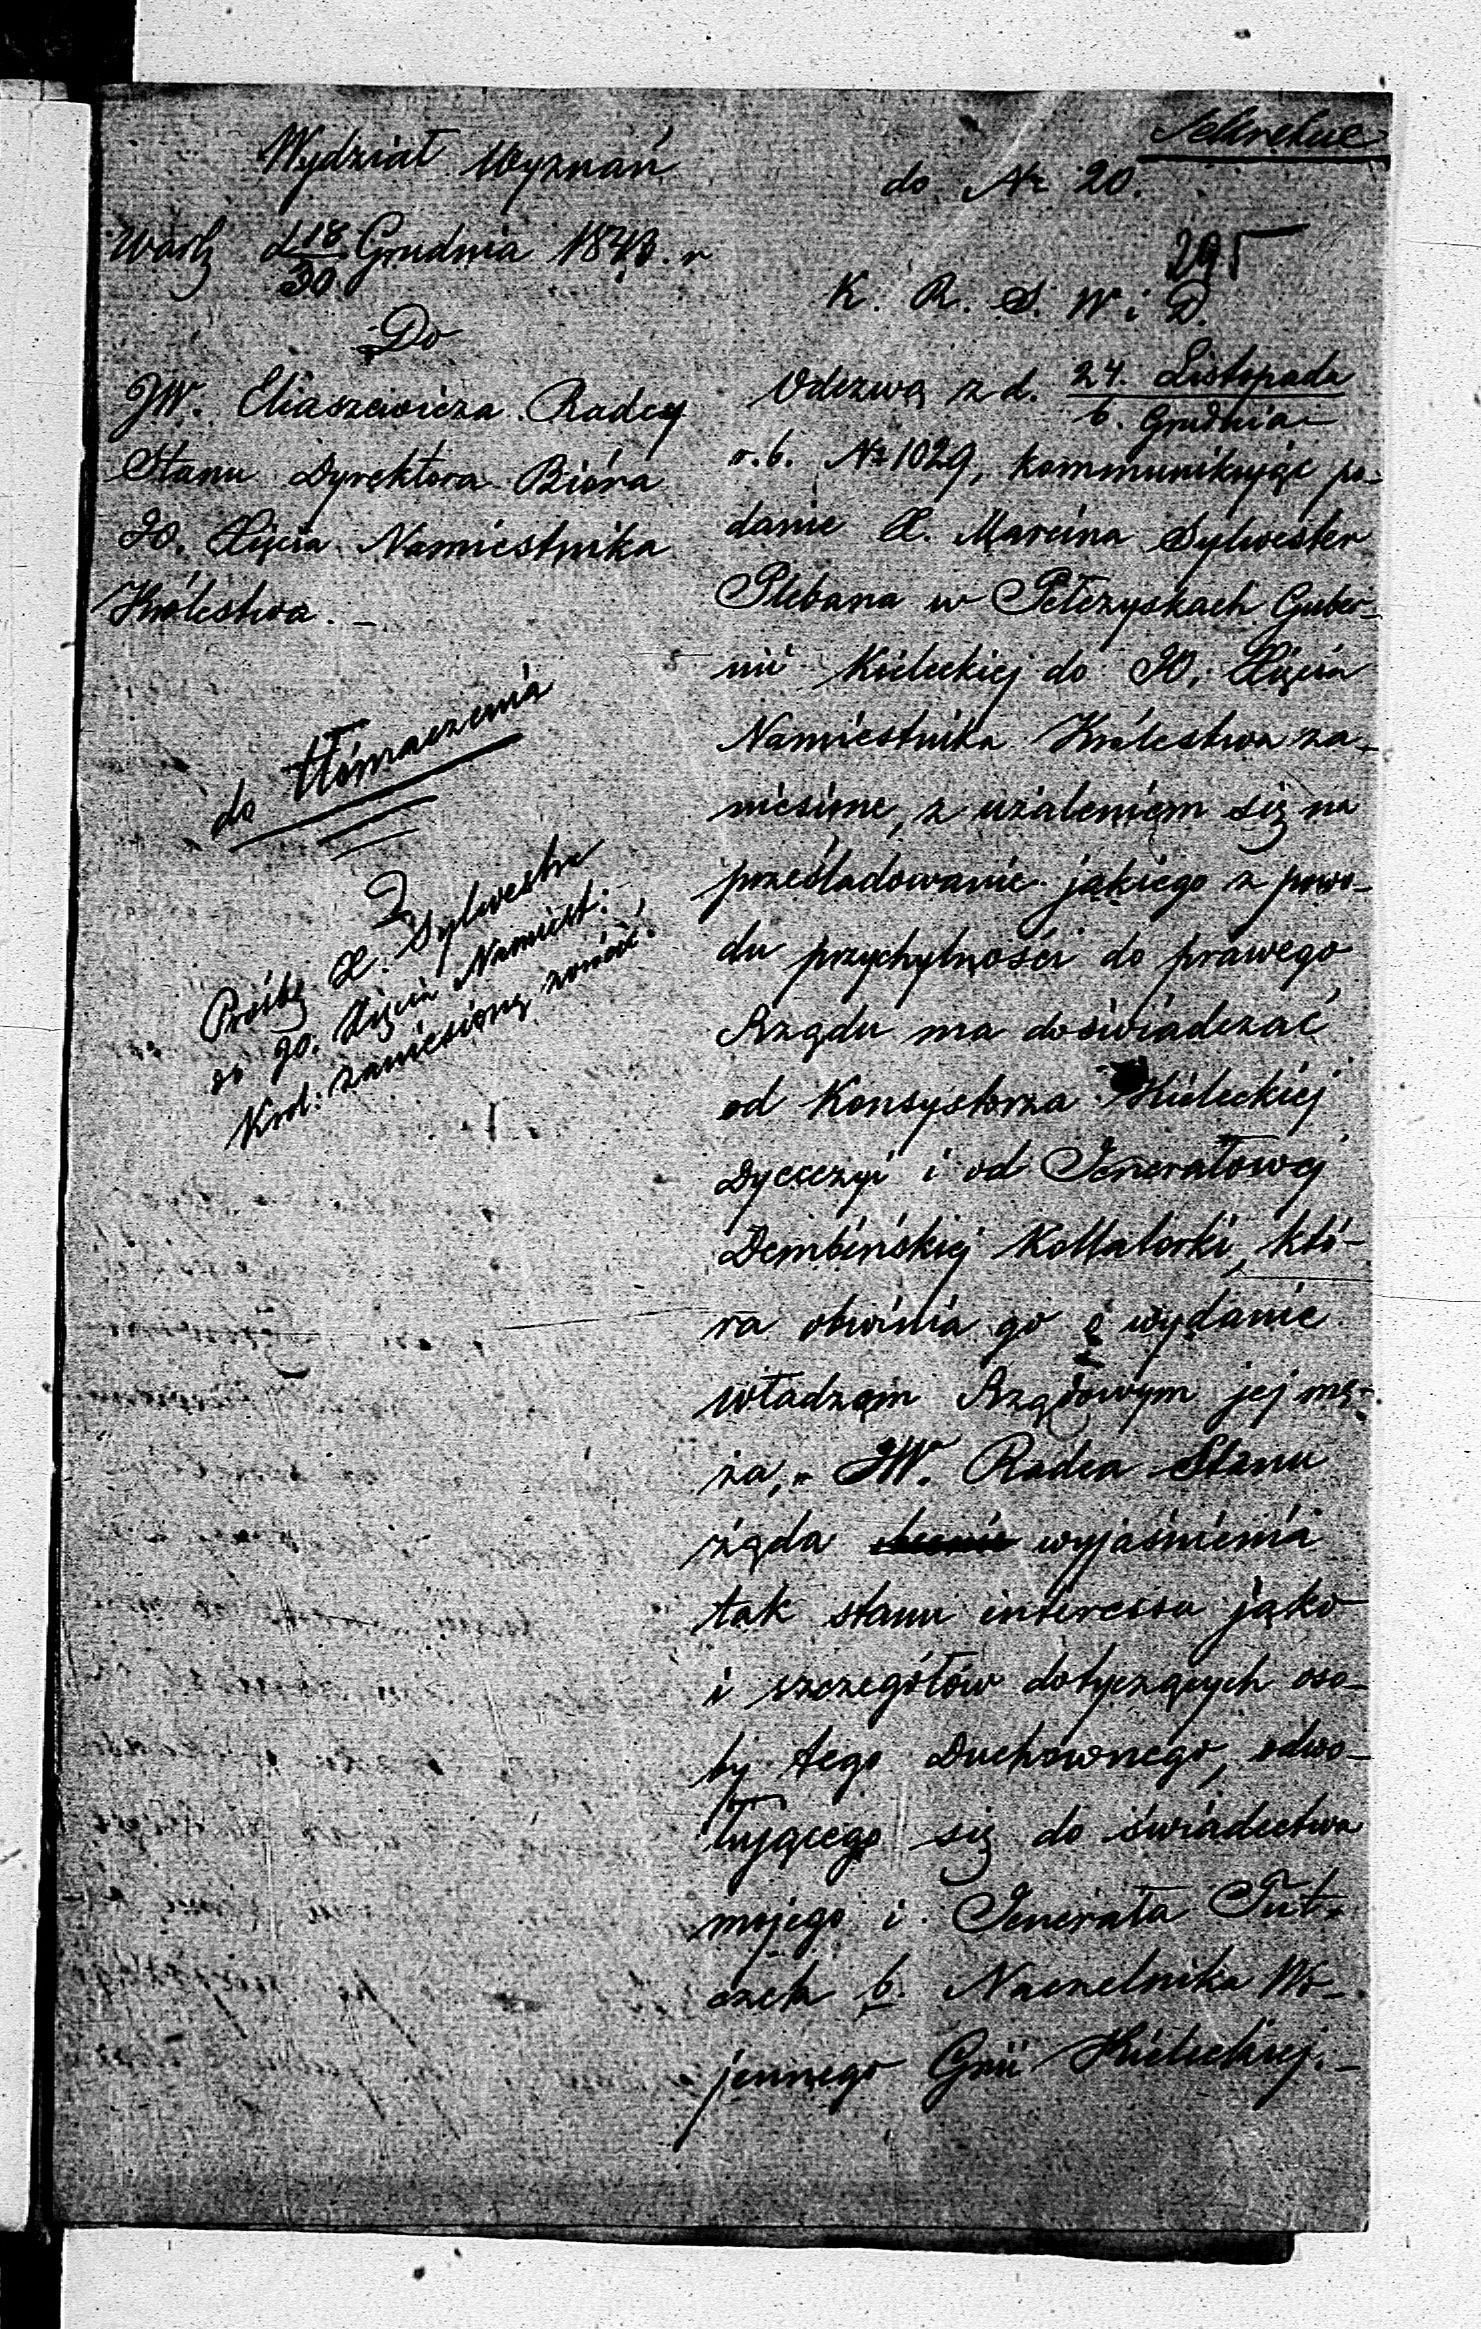 Sekretne
Wydział Wyznań
do Nr 20.
295
Warsz d 18/30 Grudnia 1843. r
K. R. S. W. i D.
Do
JW. Eliaszewicza Radcy
Stanu Dyrektora Bióra
JO. Xięcia Namiestnika
Królestwa. _
do tłómaczenia
Prośbę X. Sylwestra
do JO. Xięcia Namiest:
Król: zaniesioną zwrócić.
Odezwą z d. 24. Listopada / 6. Grudnia
r.b. Nr 1029, kommunikując po-
danie X. Marcina Sylwester
Plebana w Pełczyskach Guber-
nii Kieleckiej do JO. Xięcia
Namiestnika Królestwa za-
niesione, z użaleniem się na
prześladowanie jakiego z powo-
du przychylności do prawego
Rządu ma doświadczać
od Konsystorza Kieleckiej
Dyecezyi i od Jenerałowej
Dembińskiej Kollatorki, któ-
ra obwinia go o wydanie
władzom Rządowym jej mę-
ża, - JW. Radca Stanu
żąda wyjaśnienia
tak stanu interessu jako
i szczegółów dotyczących oso-
by tego Duchownego, odwo-
łującego się do świadectwa
mojego i Jenerała Tut-
czek b. Naczelnika Wo-
jennego Gnii Kieleckiej. _